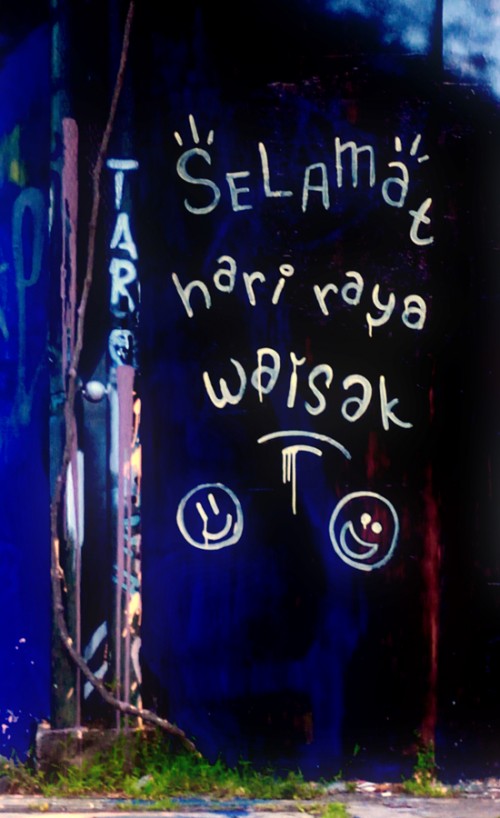 SELAMat
hari raya
waisak